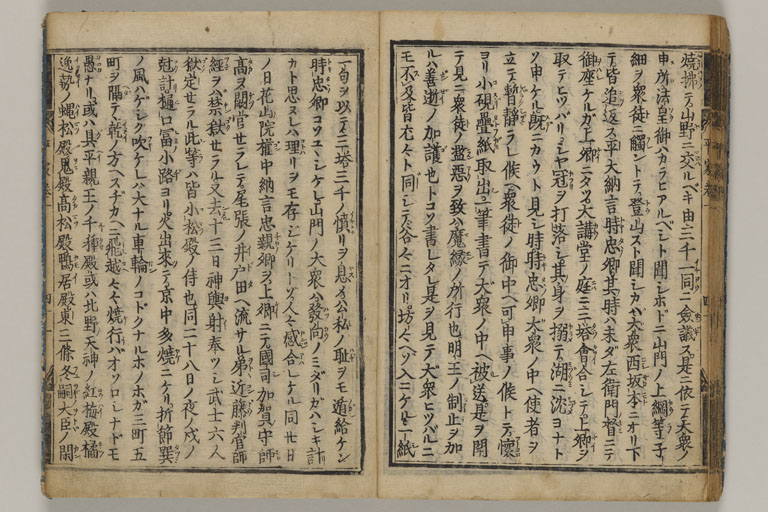 焼拂テ山野ニ交ルベキ由三千一同ニ僉議ス是ニ依テ大衆ノ
申所法皇御ハカラヒアルベシト聞シホドニ山門ノ上綱等子
細ヲ衆徒ニ觸ントテ登山スト聞シカバ大衆西坂本ニオリ下
テ皆追返ス平大納言時忠卿其時ハ未ダ左衛門督ニテ
御座ケルガ上卿ニタツ大講堂ノ庭ニ三塔會合シテ上卿ヲ
取テヒツハリシヤ冠ヲ打落シ其身ヲ搦テ湖ニ沈ヨナト
ソ申ケル既ニカウト見シ時時忠卿大衆ノ中ヘ使者ヲ
立テ暫静ラレ候ヘ衆徒ノ御中ヘ可申事ノ候トテ懐
ヨリ小硯疊紙取出シ一筆書テ大衆ノ中ヘ被送是ヲ開
テ見ニ衆徒ノ濫悪ヲ致ハ魔縁ノ所行也明王ノ制止ヲ加
ルハ善逝ノ加護也トコソ書レタレ是ヲ見テ大衆ヒツハルニ
モ不及皆尤々ト同シテ谷々ニオリ坊々ヘソ入ニケル一紙
一句ヲ以テ三塔三千ノ憤リヲ息メ公私ノ耻ヲモ遁給ケン
時忠卿コソユヽシケレ山門ノ大衆ハ發向ノミダリガハシキ計
カト思タレハ理リヲモ存シケリトゾ人々感合レケル同廿日
ノ日花山院權中納言忠親卿ヲ上卿ニテ國司加賀守師
高ヲ闕官セラレテ尾張ノ井戸田ヘ流サル弟近藤判官師
經ヲハ禁獄セラル又去十三日神輿射奉ツシ武士六人
獄定セラル此等ハ皆小松殿ノ侍也同二十八日ノ夜ノ戌ノ
尅計樋口冨小路ヨリ火出來テ京中多焼ニケリ折節巽
ノ風ハゲシク吹ケレハ大ナル車輪ノコトクナルホノホガ三町五
町ヲ隔テ乾ノ方ヘスヂカヘニ飛越々々焼行ハオソロシナドモ
愚ナリ或ハ具平親王ノ千種殿或ハ北野天神ノ紅梅殿橘
逸勢ノ蝿松殿鬼殿高松殿鴨居殿東三條冬嗣大臣ノ閑
平家巻一